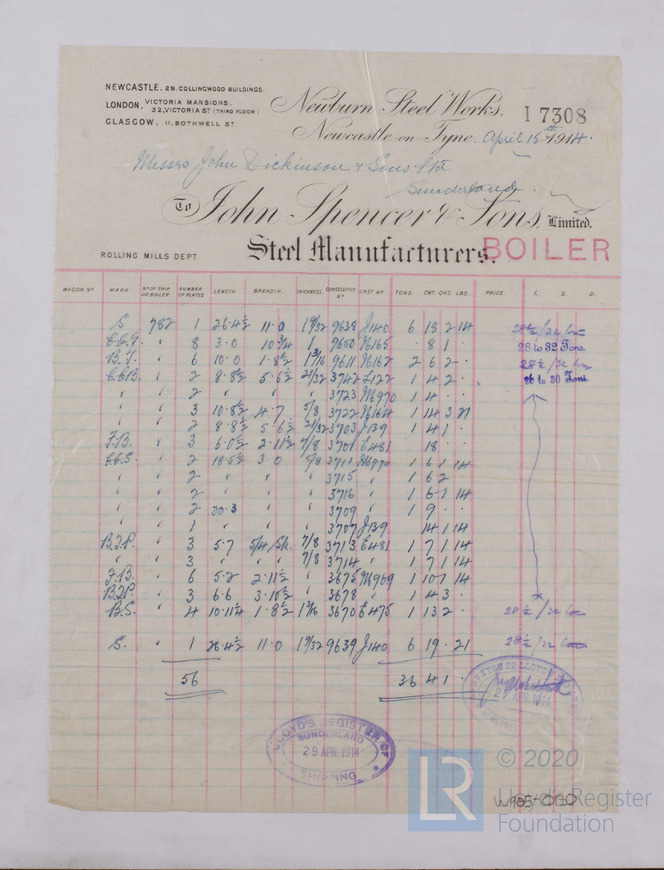 NEWCASTLE. 29. COLLINGWOOD BUILDINGS.
LONDON. VICTORIA MANSIONS.
32, VICTORIA ST (THIRD FLOOR)
GLASGOW. 11, BOTHWELL ST
Newburn Steel Works,
I 7308
Newcastle-on-Tyne, April 15th 1914.
Messrs John Dickinson & Sons Ltd
Sunderland.
To John Spencer & Sons, Limited.
ROLLING MILLS DEPT
Steel Manufacturers.
BOILER
WAGON No MARK No OF SHIP OR BOILER NUMBER OF PLATES LENGTH BREADTH THICKNESS CONSECUTIVE No CAST No TONS. CWT. QRS. LBS. PRICE. £. S. D.
S. 782 1 26.4½ 11.0 1 9/32 9638 J140 6 18 2 14
8 3.0 1 9650 81
28 to 32 Tons.
B.T. 6 10.0 1.8½ 9611 2 6 2
2 8.8½ 5.6½ 21/32 3742 1 4 2
26 to 30 Tons.
" " 2 " " " 3723 1 4
" " 3 10.8½ 4.7 5/8 3722 1 14 3 21
" " 2 8.8½ 5.6½ 21/32 3703 J139 1 4 1
F.B. " 3 6.0½ 2.11½ 7/8 3701 E481 18
2 18.5½ 3.0 5/8 3711 1 6 1 14
" " 2 " " " 3715 " 1 6 2
" " 2 " " " 3716 " 1 6 1 14
" " 2 20.3 " " 3709 " 1 9
" " 1 " " " 3707 J139 14 1 14
" 3 5.7 7/8 3713 E481 1 7 1 14
" " 3 " " 7/8 3714 " 1 7 1 14
F.B. " 6 5.2 2.11½ " 3675 1 10 1 14
" 3 6.6 3.10½ " 3678 " 1 4 3
B.S. " 4 10.11¼ 1.8½ 3670 E475 1 13 2
S. " 1 26.4½ 11.0 1 9/32 9639 J140 6 19 21
56 36 4 1
27 APR 1914
LLOYD'S REGISTER OF SHIPPING
SUNDERLAND
29 APR. 1914
LR
© 2020
Lloyd's Register
Foundation
W905-0020